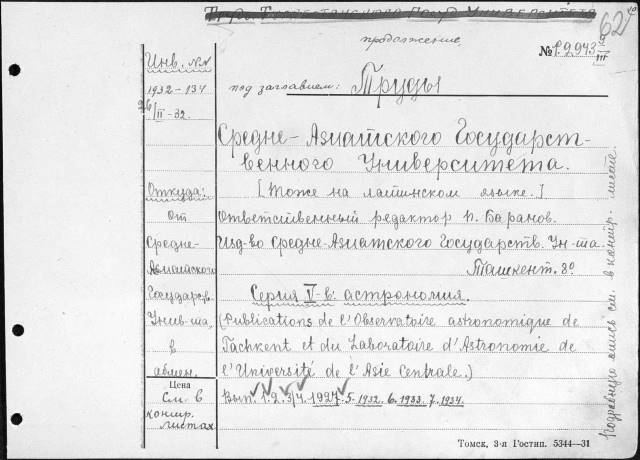 Труды Туркестанского Госуд. Университета
62
продолжение
№ 12943
III
Инв. №№
1932-134
26/II-32.
под заглавием: Труды
Средне-Азиатского Государст-
венного Университета.
[Тоже на латинском языке.]
Откуда:
от
Средне-
Азиатского
Государств.
Унив-та,
в
обмен.
Ответственный редактор П. Баранов.
Изд-во Средне-Азиатского Государств. Ун-та
Ташкент. 8°
Серия V-в: астрономия.
(Publications de l'Observatoire astronomique de
Tachkent et du Laboratoire d'Astronomie de
l'Université de l'Asie Centrale.)
Цена
См. в
контр.
листах
Вып. 1. 2. 3/4. 1927. 5. 1932. 6. 1933. 7. 1934.
подробную опись см. в контр. листе.
Томск, 3-я Гостип. 5344—31